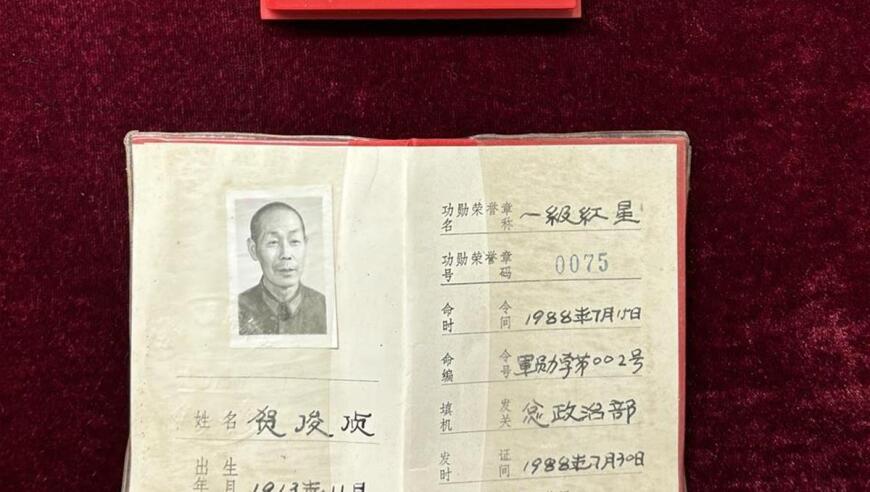 姓名 贺俊贞
出生年月 1913年11月
功勋荣誉章名称 一级红星
功勋荣誉章号码 0075
命令时间 1988年7月15日
命令编号 軍勋字第002号
填发机关 总政治部
发证时间 1988年7月30日